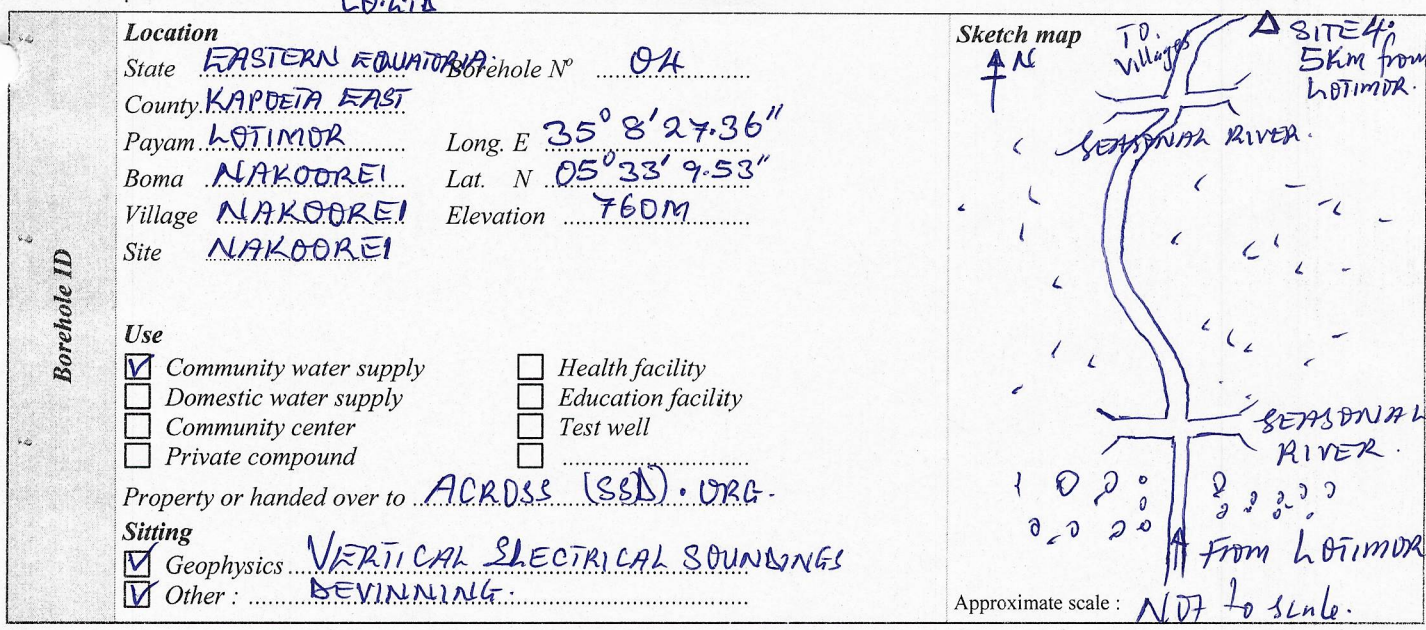 Location
State EASTERN EQUATORIA Borehole Nº 04
County KAPOETA EAST
Payam LOTIMOR Long. E 35° 8' 27.36"
Boma NAKOOREI Lat. N 05° 33' 9.53"
Village NAKOOREI Elevation 760M
Site NAKOOREI
Borehole ID
Use
Community water supply Health facility
Domestic water supply Education facility
Community center Test well
Private compound
Property or handed over to ACROSS (SSD). ORG.
Sitting
Geophysics VERTICAL ELECTRICAL SOUNDINGS
Other : DEVINNING.
Sketch map
N
TO.
Villages
SITE 4:
5Km from
LOTIMOR.
SEASONAL RIVER.
SEASONAL
RIVER.
From LOTIMOR
Approximate scale : NOT to scale.